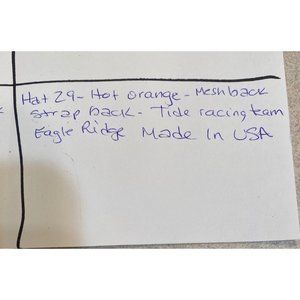 Hat 29- Hot orange - Meshback
strap back - Tide racing team
Eagle Ridge Made In USA